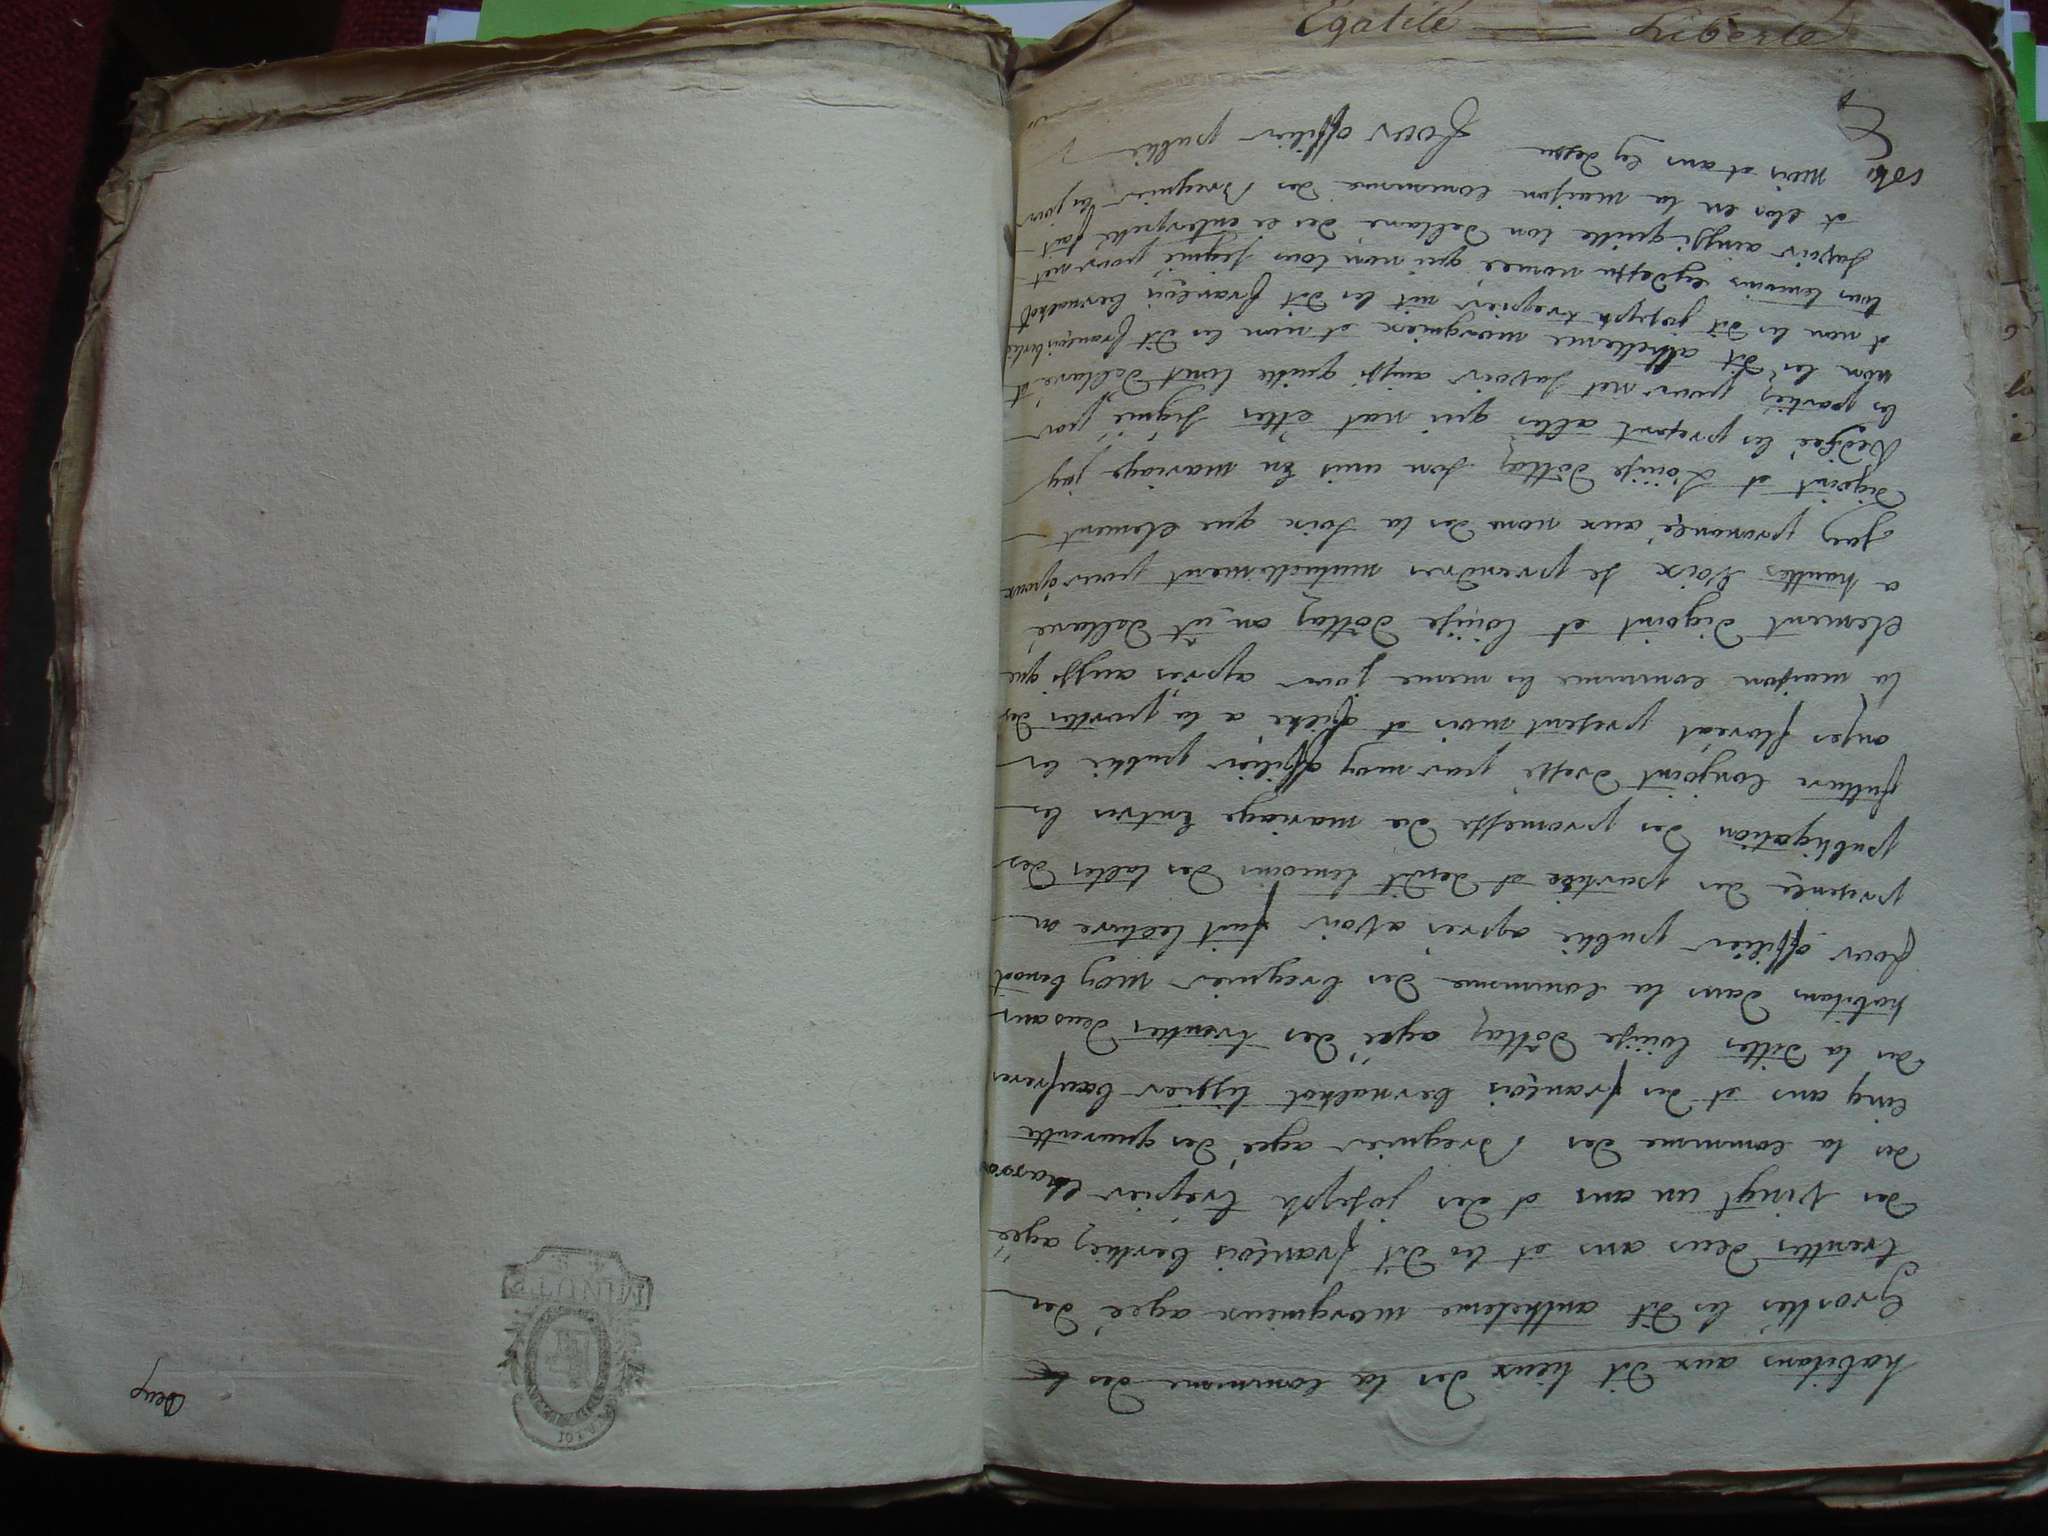 habitans aux dit lieux des la commune des la
Groslles les dit anthelme morgnieux ageé des
trentes deus ans et les dit françois berthiez ageé
des vingt un ans et des joseph tregnier
des la commune des Bregnier ageé des quarentte
cinq ans et des françois bernachot tissier beaufreres
des la dittes louise Dottaz ageé des trentes deus ans
habitans dans la commune des bregnier moy benoit
four officier public apres avoir fait lecture en
presence des parties et desdit temoins des lactes des
publigation des promesse de mariage Entres les
future conjoint dressé par moy officier public les
onzes floreal present mois et afiché a la porttes des
la maison commune les meme jour apres aussi que
clement digoint et louise Dottaz on ut declaré
a hauttes voix se prendres mutuelement pour epoux
jay prononcé aux nom des la loix que clement
Digoint et Louise Dottaz son unis En mariage jay
Redigeé les present actes qui nat ettes signé par
les partiez pour net savoir ainssi quille lont declaré et
non les dit anthelme morgnieux et non les dit françois berthié
et non les dit joseph tregnier nit les dit françois bernachot
tous temoins cydessu nomeé qui non tous signié pour net
savoir ainssi quille lon declaré des ce enterpelé fait
et clos en la maison commune des Bregnier les jour
mois et ans cy dessu
four officier public
Egalité Liberté
Deux
MINUTE